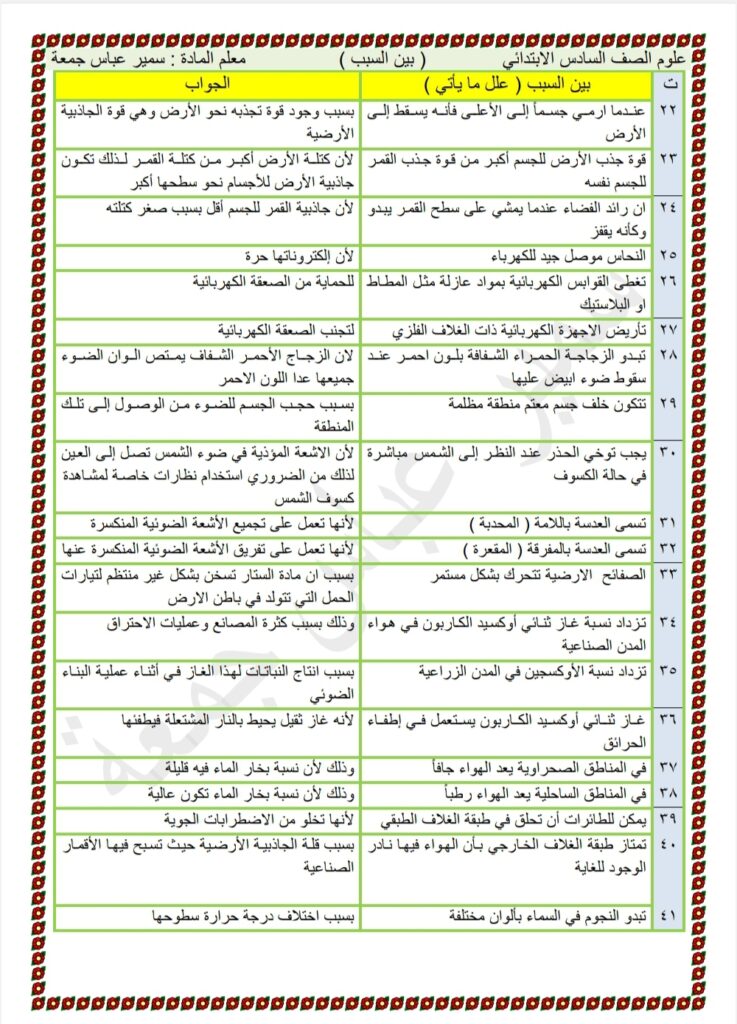 علوم الصف السادس الابتدائي ( بين السبب ) معلم المادة : سمير عباس جمعة
ت بين السبب ( علل ما يأتي ) الجواب
٢٢ عندما ارمي جسماً إلى الأعلى فأنه يسقط إلى بسبب وجود قوة تجذبه نحو الأرض وهي قوة الجاذبية
الأرض الأرضية
٢٣ قوة جذب الأرض للجسم أكبر من قوة جذب القمر لأن كتلة الأرض أكبر من كتلة القمر لذلك تكون
للجسم نفسه جاذبية الأرض للأجسام نحو سطحها أكبر
٢٤ ان رائد الفضاء عندما يمشي على سطح القمر يبدو لأن جاذبية القمر للجسم أقل بسبب صغر كتلته
وكأنه يقفز
٢٥ النحاس موصل جيد للكهرباء لأن إلكتروناتها حرة
٢٦ تغطى القوابس الكهربائية بمواد عازلة مثل المطاط للحماية من الصعقة الكهربائية
او البلاستيك
٢٧ تأريض الاجهزة الكهربائية ذات الغلاف الفلزي لتجنب الصعقة الكهربائية
٢٨ تبدو الزجاجة الحمراء الشفافة بلون احمر عند لان الزجاج الأحمر الشفاف يمتص الوان الضوء
سقوط ضوء ابيض عليها جميعها عدا اللون الاحمر
٢٩ تتكون خلف جسم معتم منطقة مظلمة بسبب حجب الجسم للضوء من الوصول إلى تلك
المنطقة
٣٠ يجب توخي الحذر عند النظر إلى الشمس مباشرة لأن الاشعة المؤذية في ضوء الشمس تصل إلى العين
في حالة الكسوف لذلك من الضروري استخدام نظارات خاصة لمشاهدة
كسوف الشمس
٣١ تسمى العدسة باللامة ( المحدبة ) لأنها تعمل على تجميع الأشعة الضوئية المنكسرة
٣٢ تسمى العدسة بالمفرقة ( المقعرة ) لأنها تعمل على تفريق الأشعة الضوئية المنكسرة عنها
٣٣ الصفائح الارضية تتحرك بشكل مستمر بسبب ان مادة الستار تسخن بشكل غير منتظم لتيارات
الحمل التي تتولد في باطن الارض
٣٤ تزداد نسبة غاز ثنائي أوكسيد الكاربون في هواء وذلك بسبب كثرة المصانع وعمليات الاحتراق
المدن الصناعية
٣٥ تزداد نسبة الأوكسجين في المدن الزراعية بسبب انتاج النباتات لهذا الغاز في أثناء عملية البناء
الضوئي
٣٦ غاز ثنائي أوكسيد الكاربون يستعمل في إطفاء لأنه غاز ثقيل يحيط بالنار المشتعلة فيطفئها
الحرائق
٣٧ في المناطق الصحراوية يعد الهواء جافاً وذلك لأن نسبة بخار الماء فيه قليلة
٣٨ في المناطق الساحلية يعد الهواء رطباً وذلك لأن نسبة بخار الماء تكون عالية
٣٩ يمكن للطائرات أن تحلق في طبقة الغلاف الطبقي لأنها تخلو من الاضطرابات الجوية
٤٠ تمتاز طبقة الغلاف الخارجي بأن الهواء فيها نادر بسبب قلة الجاذبية الأرضية حيث تسبح فيها الأقمار
الوجود للغاية الصناعية
٤١ تبدو النجوم في السماء بألوان مختلفة بسبب اختلاف درجة حرارة سطوحها
سمير عباس جمعة